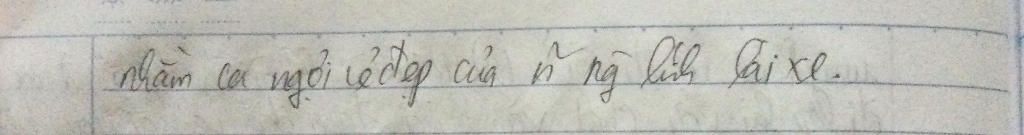 nhằm ca ngợi vẻ đẹp của n~ ng lính lái xe.